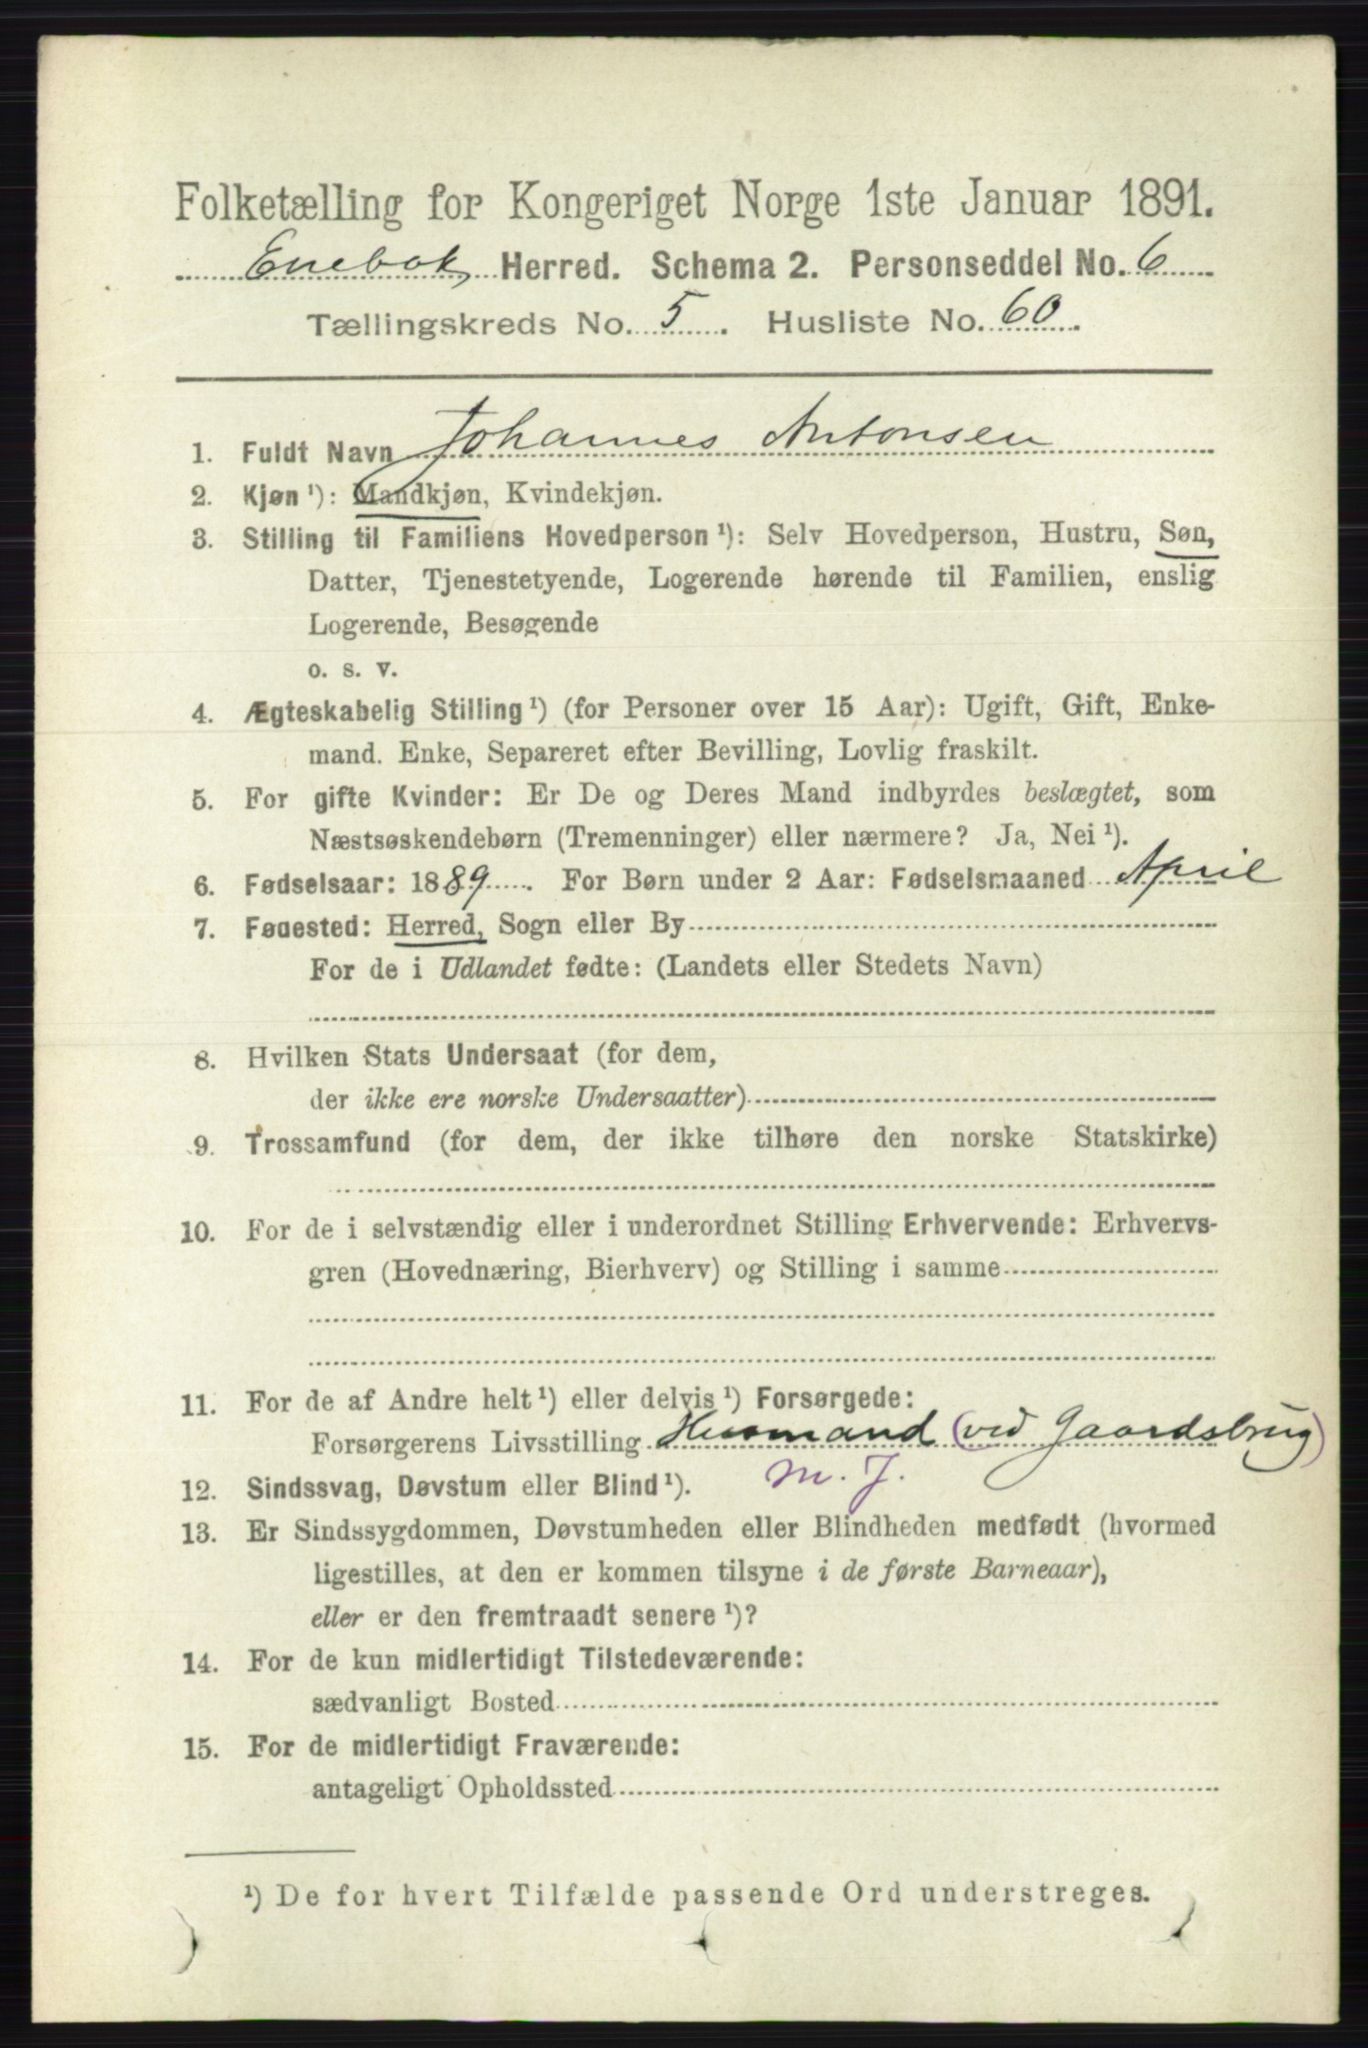 Folketælling for Kongeriget Norge 1ste Januar 1891.
Enebak Herred. Schema 2. Personseddel No. 6
Tællingskreds No. 5. Husliste No. 60.
1. Fuldt Navn Johannes Antonsen
2. Kjøn ¹): Mandkjøn, Kvindekjøn.
3. Stilling til Familiens Hovedperson ¹): Selv Hovedperson, Hustru, Søn,
Datter, Tjenestetyende, Logerende hørende til Familien, enslig
Logerende, Besøgende
o. s. v.
4. Ægteskabelig Stilling ¹) (for Personer over 15 Aar): Ugift, Gift, Enke-
mand. Enke, Separeret efter Bevilling, Lovlig fraskilt.
5. For gifte Kvinder: Er De og Deres Mand indbyrdes beslægtet, som
Næstsøskendebørn (Tremenninger) eller nærmere? Ja, Nei ¹).
6. Fødselsaar: 1889. For Børn under 2 Aar: Fødselsmaaned April
7. Fødested: Herred, Sogn eller By
For de i Udlandet fødte: (Landets eller Stedets Navn)
8. Hvilken Stats Undersaat (for dem,
der ikke ere norske Undersaatter)
9. Trossamfund (for dem, der ikke tilhøre den norske Statskirke)
10. For de i selvstændig eller i underordnet Stilling Erhvervende: Erhvervs-
gren (Hovednæring, Bierhverv) og Stilling i samme
11. For de af Andre helt ¹) eller delvis ¹) Forsørgede:
Forsørgerens Livsstilling Husmand (ved Gaardsbrug)
m. J.
12. Sindssvag, Døvstum eller Blind ¹).
13. Er Sindssygdommen, Døvstumheden eller Blindheden medfødt (hvormed
ligestilles, at den er kommen tilsyne i de første Barneaar),
eller er den fremtraadt senere ¹)?
14. For de kun midlertidigt Tilstedeværende:
sædvanligt Bosted
15. For de midlertidigt Fraværende:
antageligt Opholdssted
¹) De for hvert Tilfælde passende Ord understreges.